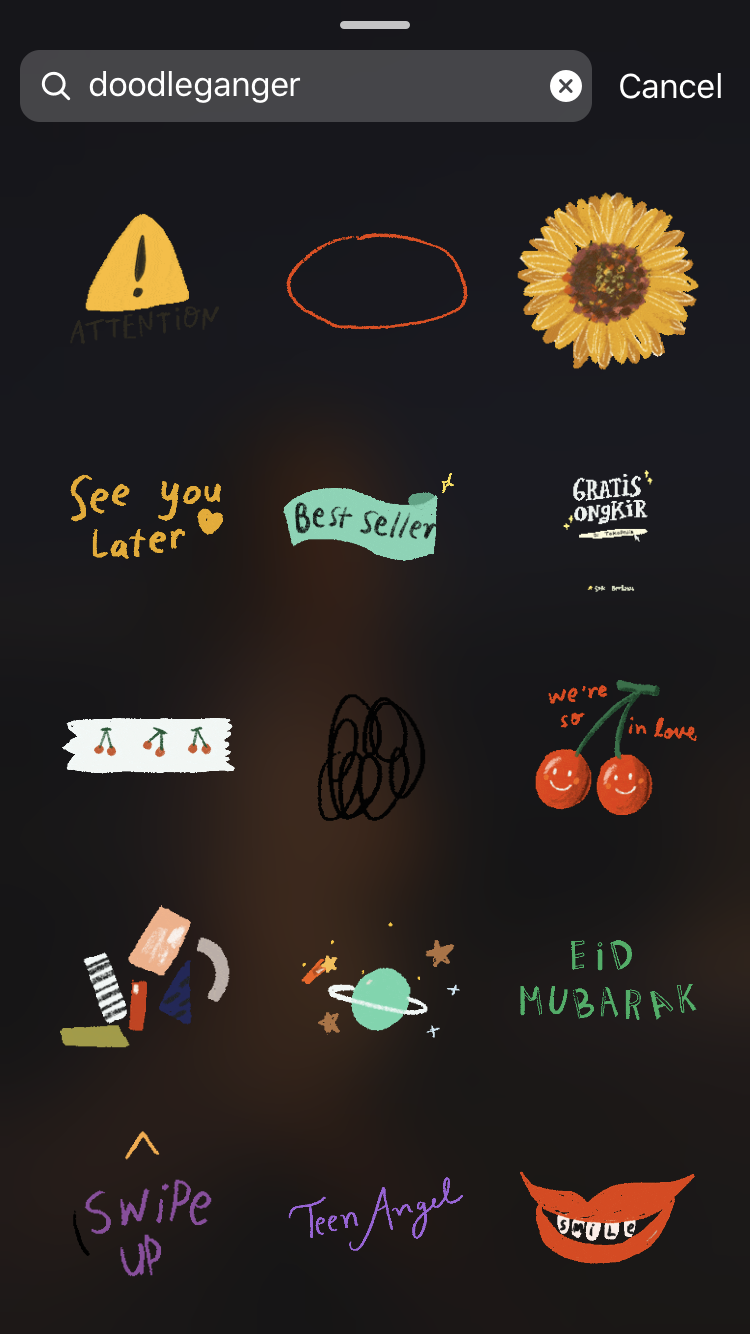 doodleganger
Cancel
ATTENTiON
See you
Later
Best Seller
GRATiS
ongkiR
we're
so
in love
EiD
MUBARAK
SWiPe
UP
Teen Angel
SMiLe